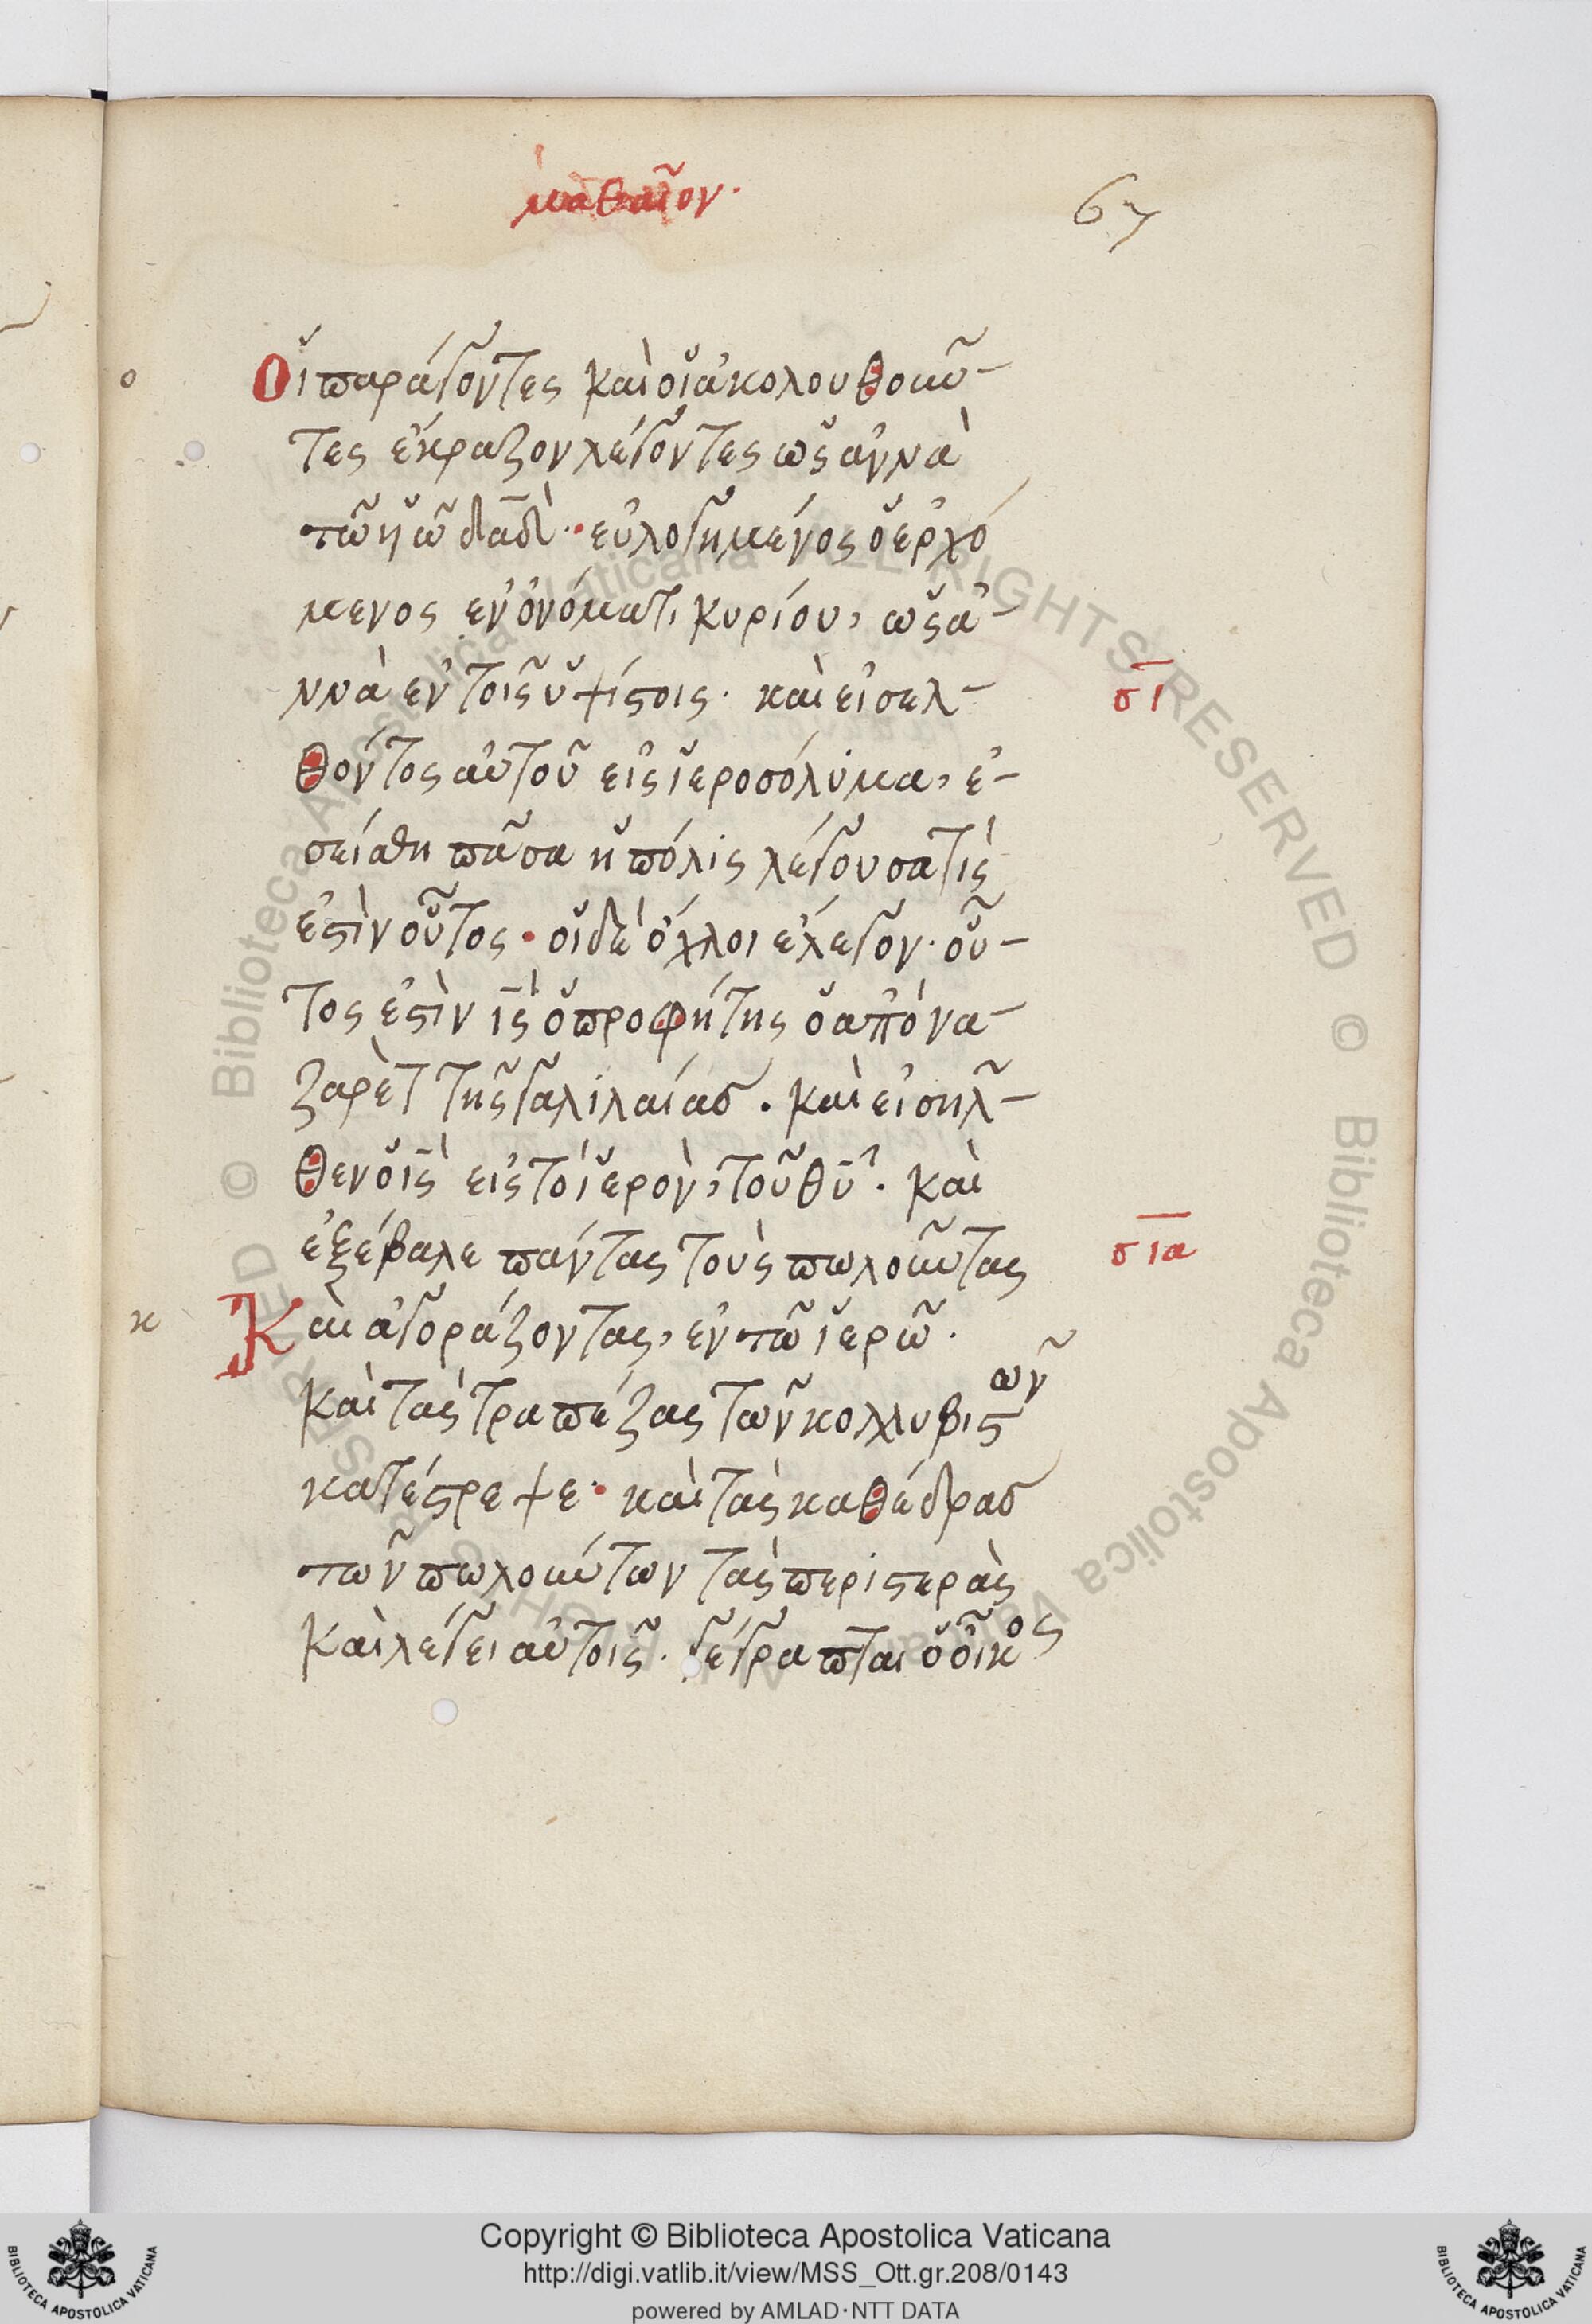 μαθαῖον·
67
ο
Οἱ παράγοντες καὶ οἱ ἀκολουθοῦν-
τες ἔκραζον λέγοντες ὡς ἀννὰ
τῶ ὑῶ δᾱδ̀· εὐλογημένος ὁ ἐρχό
μενος ἐν ὀνόματι κυρίου, ὡς ἀ-
ννὰ ἐν τοῖς ὑψίστοις· καὶ εἰσελ-
σι
θόντος αὐτοῦ εἰς ἱεροσόλυμα, ἐ-
σείσθη πᾶσα ἡ πόλις λέγουσα τὶς
ἐστὶν οὗτος· οἱ δὲ ὄχλοι ἔλεγον· οὗ-
τος ἐστὶν ι̅ς̅ ὁ προφήτης ὁ ἀπὸ να-
ζαρὲτ τῆς γαλιλαίας. καὶ εἰσῆλ-
θεν ὁ ι̅ς̅ εἰς τὸ ἱερὸν, τοῦ θ̅υ̅. καὶ
ἐξέβαλε πάντας τοὺς πωλοῦντας
σια
κ
Καὶ ἀγοράζοντας, ἐν τῶ ἱερῶ.
καὶ τὰς τραπέζας τῶν κολλυβιστῶν
κατέστρεψε· καὶ τὰς καθέδρας
τῶν πωλούντων τὰς περιστερὰς
καὶ λέγει αὐτοῖς. γέγραπται ὁ οἶκος
Copyright © Biblioteca Apostolica Vaticana
http://digi.vatlib.it/view/MSS_Ott.gr.208/0143
powered by AMLAD·NTT DATA
BIBLIOTECA APOSTOLICA VATICANA
BIBLIOTECA APOSTOLICA VATICANA